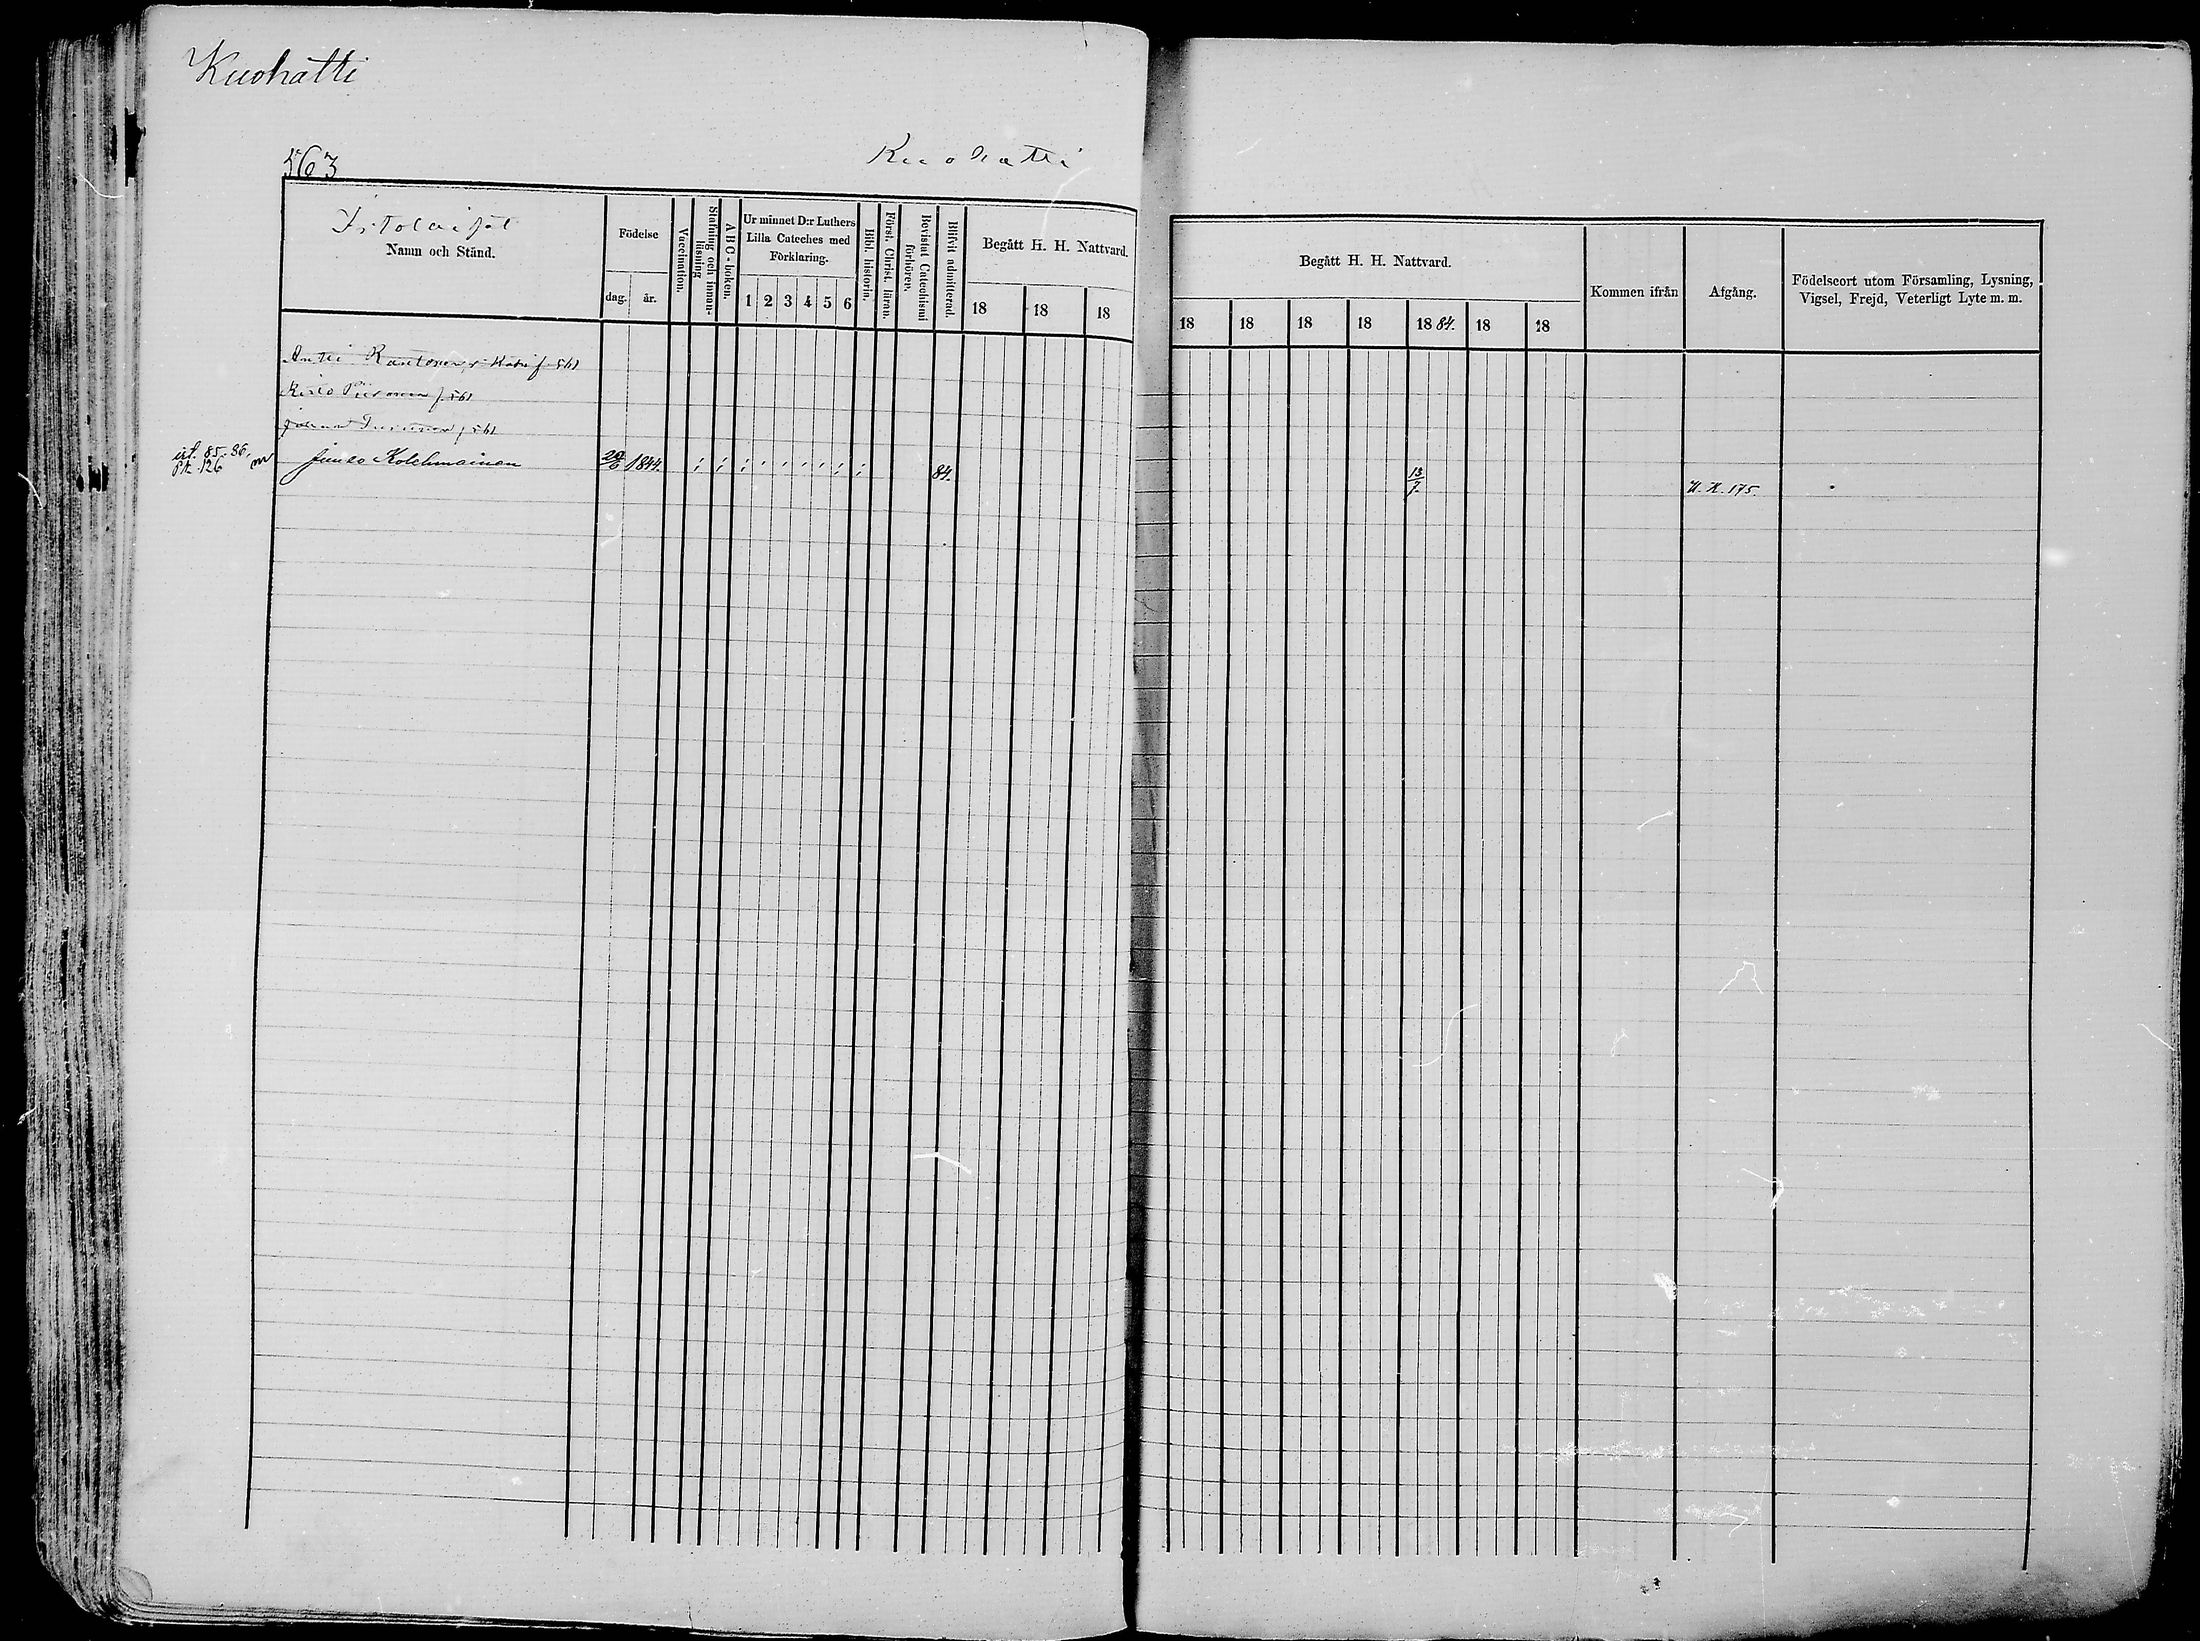 Kuohatti
563 Kuohatti
Namn och Stånd.
Födelse
dag. år.
Vaccination.
Stafning och innanläsning
A B C-boken.
Ur minnet D:r Luthers
Lilla Cateches med
Förklaring.
1 2 3 4 5 6
Bibl. historia.
Först. Christ. läran.
Bevistat Catechismi
förhören.
Blifvit admitterad.
Begått H. H. Nattvard.
18 18 18
Begått H. H. Nattvard.
18 18 18 18 1884. 18 18
Kommen ifrån
Afgång.
Födelseort utom Församling, Lysning,
Vigsel, Frejd, Veterligt Lyte m. m.
Antti f. 561
Piironen f. 561
f. 561
85-86.
126 Kolehmainen 1844. 84. 13/7. 175.